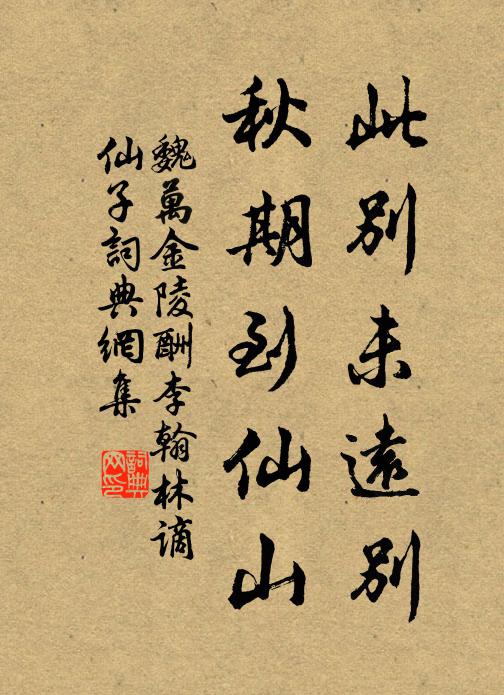 此別未遠別
秋期到仙山
魏萬金陵酬李翰林謫
仙子詞典網集
詞典
网印